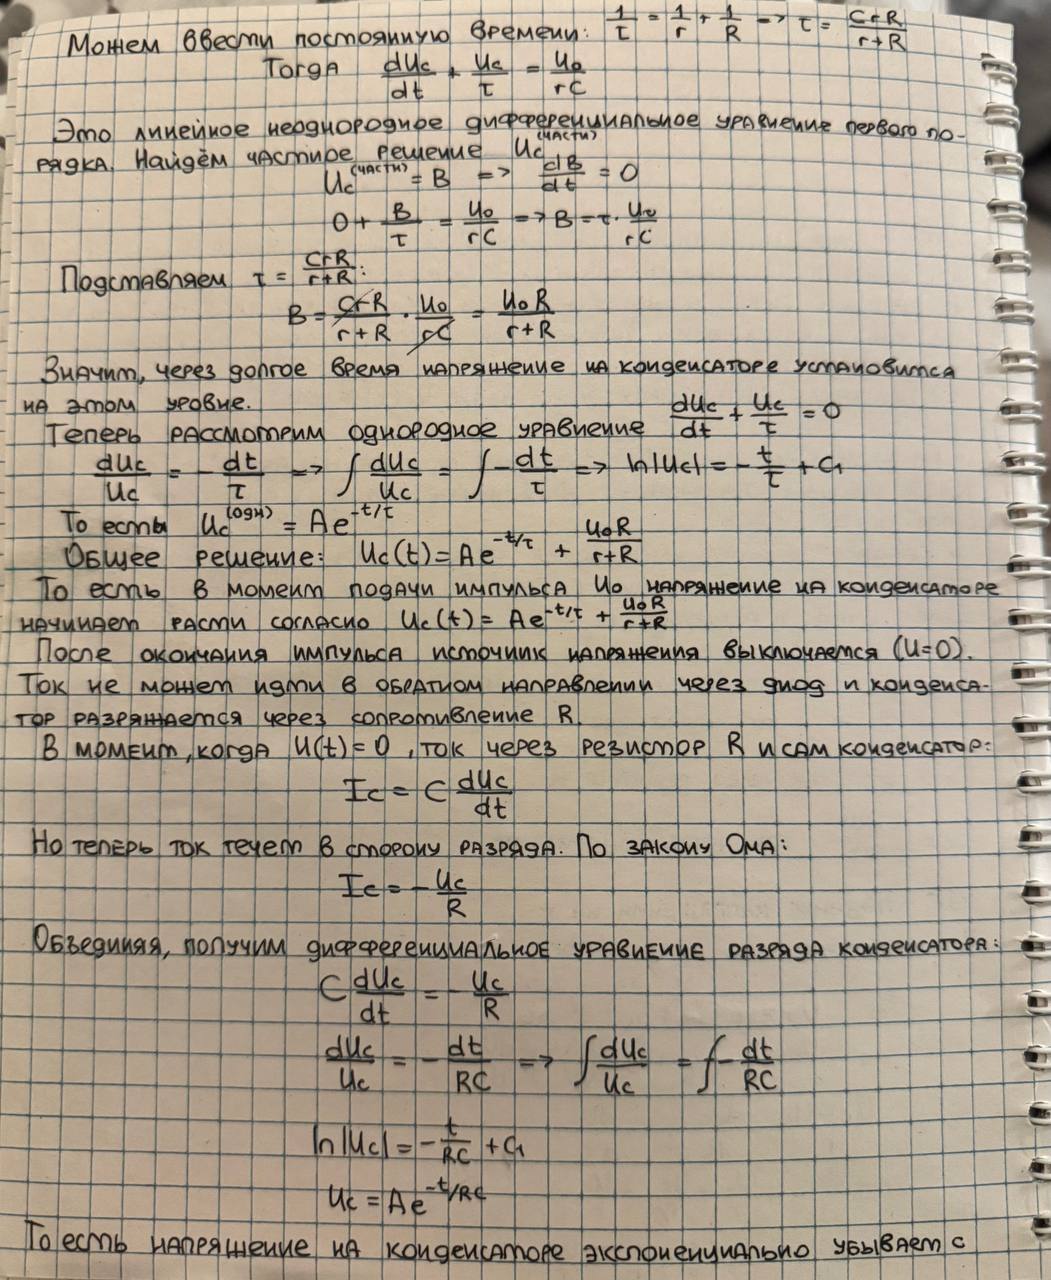 Можем ввести постоянную времени: 1/τ = 1/r + 1/R => τ = CrR/(r+R)
Тогда dUc/dt + Uc/τ = U0/rC
Это линейное неоднородное дифференциальное уравнение первого по-
рядка. Найдём частное решение Uc^(части)
Uc^(части) = B => dB/dt = 0
0 + B/τ = U0/rC => B = τ · U0/rC
Подставляем τ = CrR/(r+R):
B = CrR/(r+R) · U0/rC = U0R/(r+R)
Значит, через долгое время напряжение на конденсаторе установится
на этом уровне.
Теперь рассмотрим однородное уравнение dUc/dt + Uc/τ = 0
dUc/Uc = - dt/τ => ∫ dUc/Uc = ∫ - dt/τ => ln|Uc| = - t/τ + C1
То есть Uc^(одн) = Ae^(-t/τ)
Общее решение: Uc(t) = Ae^(-t/τ) + U0R/(r+R)
То есть в момент подачи импульса U0 напряжение на конденсаторе
начинает расти согласно Uc(t) = Ae^(-t/τ) + U0R/(r+R)
После окончания импульса источник напряжения выключается (U=0).
Ток не может идти в обратном направлении через диод и конденса-
тор разряжается через сопротивление R.
В момент, когда U(t) = 0, ток через резистор R и сам конденсатор:
Ic = C dUc/dt
Но теперь ток течет в сторону разряда. По закону Ома:
Ic = - Uc/R
Объединяя, получим дифференциальное уравнение разряда конденсатора:
C dUc/dt = - Uc/R
dUc/Uc = - dt/RC => ∫ dUc/Uc = ∫ - dt/RC
ln|Uc| = - t/RC + C1
Uc = Ae^(-t/RC)
То есть напряжение на конденсаторе экспоненциально убывает с